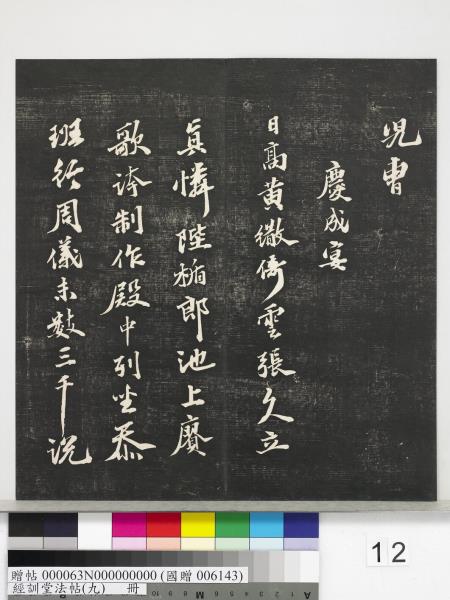 兒曹
慶成宴
日高黃繖倚雲張久立
真憐陛楯郎池上賡
歌誇制作殿中列坐忝
班行周儀未數三千說
12
贈帖 000063N000000000 (國贈 006143)
經訓堂法帖(九) 冊